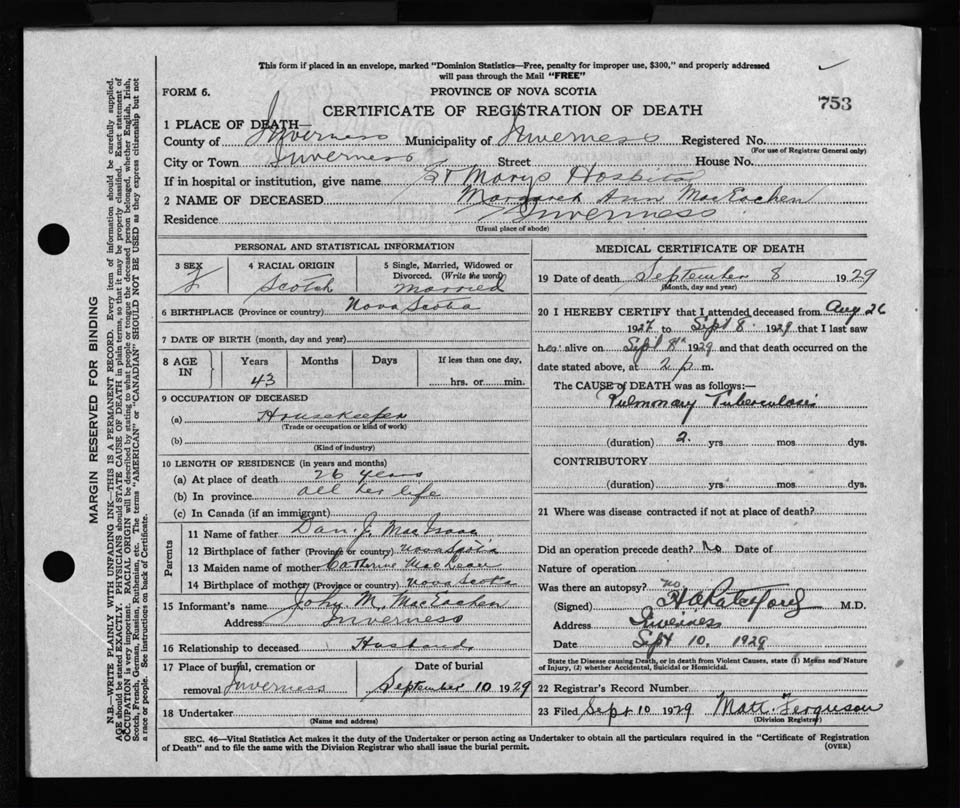 This form if placed in an envelope, marked "Dominion Statistics—Free, penalty for improper use, $300," and properly addressed
will pass through the Mail "FREE"
FORM 6.
PROVINCE OF NOVA SCOTIA
CERTIFICATE OF REGISTRATION OF DEATH
753
1 PLACE OF DEATH—
County of Inverness Municipality of Inverness Registered No.
(For use of Registrar General only)
City or Town Inverness Street House No.
If in hospital or institution, give name St Marys Hospital
2 NAME OF DECEASED Margaret Ann MacEachen
Residence Inverness
(Usual place of abode)
MARGIN RESERVED FOR BINDING
N.B.—WRITE PLAINLY WITH UNFADING INK—THIS IS A PERMANENT RECORD. Every item of information should be carefully supplied.
AGE should be stated EXACTLY. PHYSICIANS should STATE CAUSE OF DEATH in plain terms, so that it may be properly classified. Exact statement of
OCCUPATION is very important. RACIAL ORIGIN will be described by stating to what people or tongue the deceased person belonged, whether English, Irish,
Scotch, French, German, Russian, Ruthenian, etc. The terms "AMERICAN" or "CANADIAN" SHOULD NOT BE USED as they express citizenship but not
a race or people. See instructions on back of Certificate.
PERSONAL AND STATISTICAL INFORMATION
3 SEX
F
4 RACIAL ORIGIN
Scotch
5 Single, Married, Widowed or
Divorced. (Write the word)
Married
6 BIRTHPLACE (Province or country) Nova Scotia
7 DATE OF BIRTH (month, day and year)
8 AGE IN
Years Months Days If less than one day,
43 hrs. or min.
9 OCCUPATION OF DECEASED
(a) Housekeeper
(Trade or occupation or kind of work)
(b)
(Kind of industry)
10 LENGTH OF RESIDENCE (in years and months)
(a) At place of death 26 years
(b) In province all her life
(c) In Canada (if an immigrant)
Parents
11 Name of father Dan. J. MacIsaac
12 Birthplace of father (Province or country) Nova Scotia
13 Maiden name of mother Catherine MacLean
14 Birthplace of mother (Province or country) Nova Scota
15 Informant's name John M. MacEachen
Address Inverness
16 Relationship to deceased Husband
17 Place of burial, cremation or
removal Inverness
Date of burial
September 10 1929
18 Undertaker
(Name and address)
MEDICAL CERTIFICATE OF DEATH
19 Date of death September 8 1929
(Month, day and year)
20 I HEREBY CERTIFY that I attended deceased from Aug 26
1927 to Sept 8 1929 that I last saw
her alive on Sept 8th 1929 and that death occurred on the
date stated above, at 2 p m.
The CAUSE of DEATH was as follows:—
Pulmonary Tuberculosis
(duration) 2 yrs. mos. dys.
CONTRIBUTORY
(duration) yrs. mos. dys.
21 Where was disease contracted if not at place of death?
Did an operation precede death? No Date of
Nature of operation
Was there an autopsy? no
(Signed) M.D.
Address Inverness
Date Sept 10, 1929
State the Disease causing Death, or in death from Violent Causes, state (1) Means and Nature
of Injury, (2) whether Accidental, Suicidal or Homicidal.
22 Registrar's Record Number
23 Filed Sept 10 1929 Matt. Ferguson
(Division Registrar)
SEC. 46—Vital Statistics Act makes it the duty of the Undertaker or person acting as Undertaker to obtain all the particulars required in the "Certificate of Registration
of Death" and to file the same with the Division Registrar who shall issue the burial permit.
(OVER)